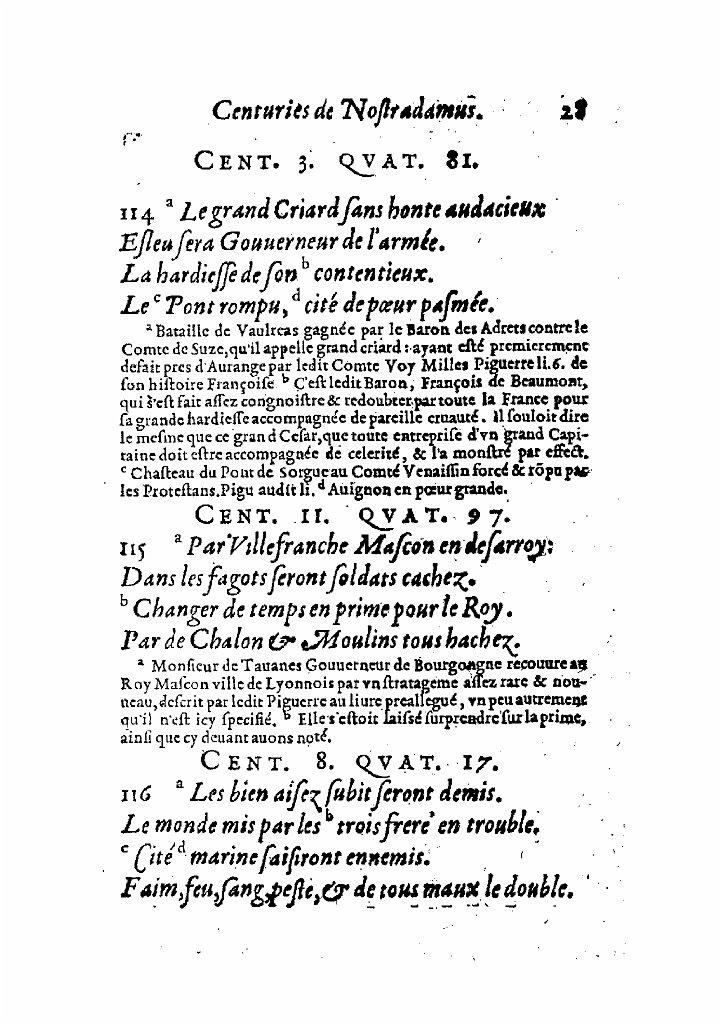 Centuries de Noſtradamus. 28
CENT. 3. QVAT. 81.
114 ᵃ Le grand Criard ſans honte audacieux
Eſleu ſera Gouuerneur de l'armée.
La hardieſſe de ſon ᵇ contentieux.
Le ᶜ Pont rompu, ᵈ cité de pœur paſmée.
ᵃ Bataille de Vaulreas gagnée par le Baron des Adrets contre le
Comte de Suze, qu'il appelle grand criard : ayant eſté premierement
defait pres d'Aurange par ledit Comte Voy Milles Piguerre li. 6. de
ſon hiſtoire Françoiſe ᵇ C'eſt ledit Baron, François de Beaumont,
qui s'eſt fait aſſez congnoiſtre & redoubter par toute la France pour
ſa grande hardieſſe accompagnée de pareille cruauté. Il ſouloit dire
le meſme que ce grand Ceſar, que toute entrepriſe d'vn grand Capi-
taine doit eſtre accompagnée de celerité, & l'a monſtré par effect.
ᶜ Chaſteau du Pont de Sorgue au Comté Venaiſſin forcé & rõpu par
les Proteſtans. Pigu audit li. ᵈ Auignon en pœur grande.
CENT. 11. QVAT. 97.
115 ᵃ Par Villefranche Maſcon en deſarroy:
Dans les fagots ſeront ſoldats cachez.
ᵇ Changer de temps en prime pour le Roy.
Par de Chalon & Moulins tous hachez.
ᵃ Monſieur de Tauanes Gouuerneur de Bourgongne recouure au
Roy Maſcon ville de Lyonnois par vn ſtratageme aſſez rare & nou-
neau, deſcrit par ledit Piguerre au liure preallegué, vn peu autrement
qu'il n'eſt icy ſpecifié. ᵇ Elle s'eſtoit laiſſé ſurprendre ſur la prime,
ainſi que cy deuant auons noté.
CENT. 8. QVAT. 17.
116 ᵃ Les bien aiſez ſubit ſeront demis.
Le monde mis par les ᵇ trois frere' en trouble.
ᶜ Cité ᵈ marine ſaiſiront ennemis.
Faim, feu, ſang, peſte, & de tous maux le double.